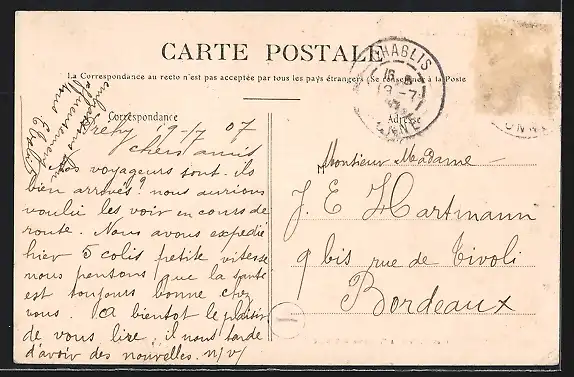 CARTE POSTALE
La Correspondance au recto n'est pas acceptée par tous les pays étrangers (Se renseigner à la Poste
Correspondance
Adresse
CHABLIS
YONNE
Préhy 19-7 07
chers amis
Les voyageurs sont-ils
bien arrivés? nous aurions
voulu les voir en cours de
route. Nous avons expédié
hier 5 colis petite vitesse
nous pensons que la santé
est toujours bonne chez
vous. A bientot le plaisir
de vous lire, il nous tarde
d'avoir des nouvelles. n/v/
Monsieur Madame
J. E Hartmann
9 bis rue de Tivoli
Bordeaux
1